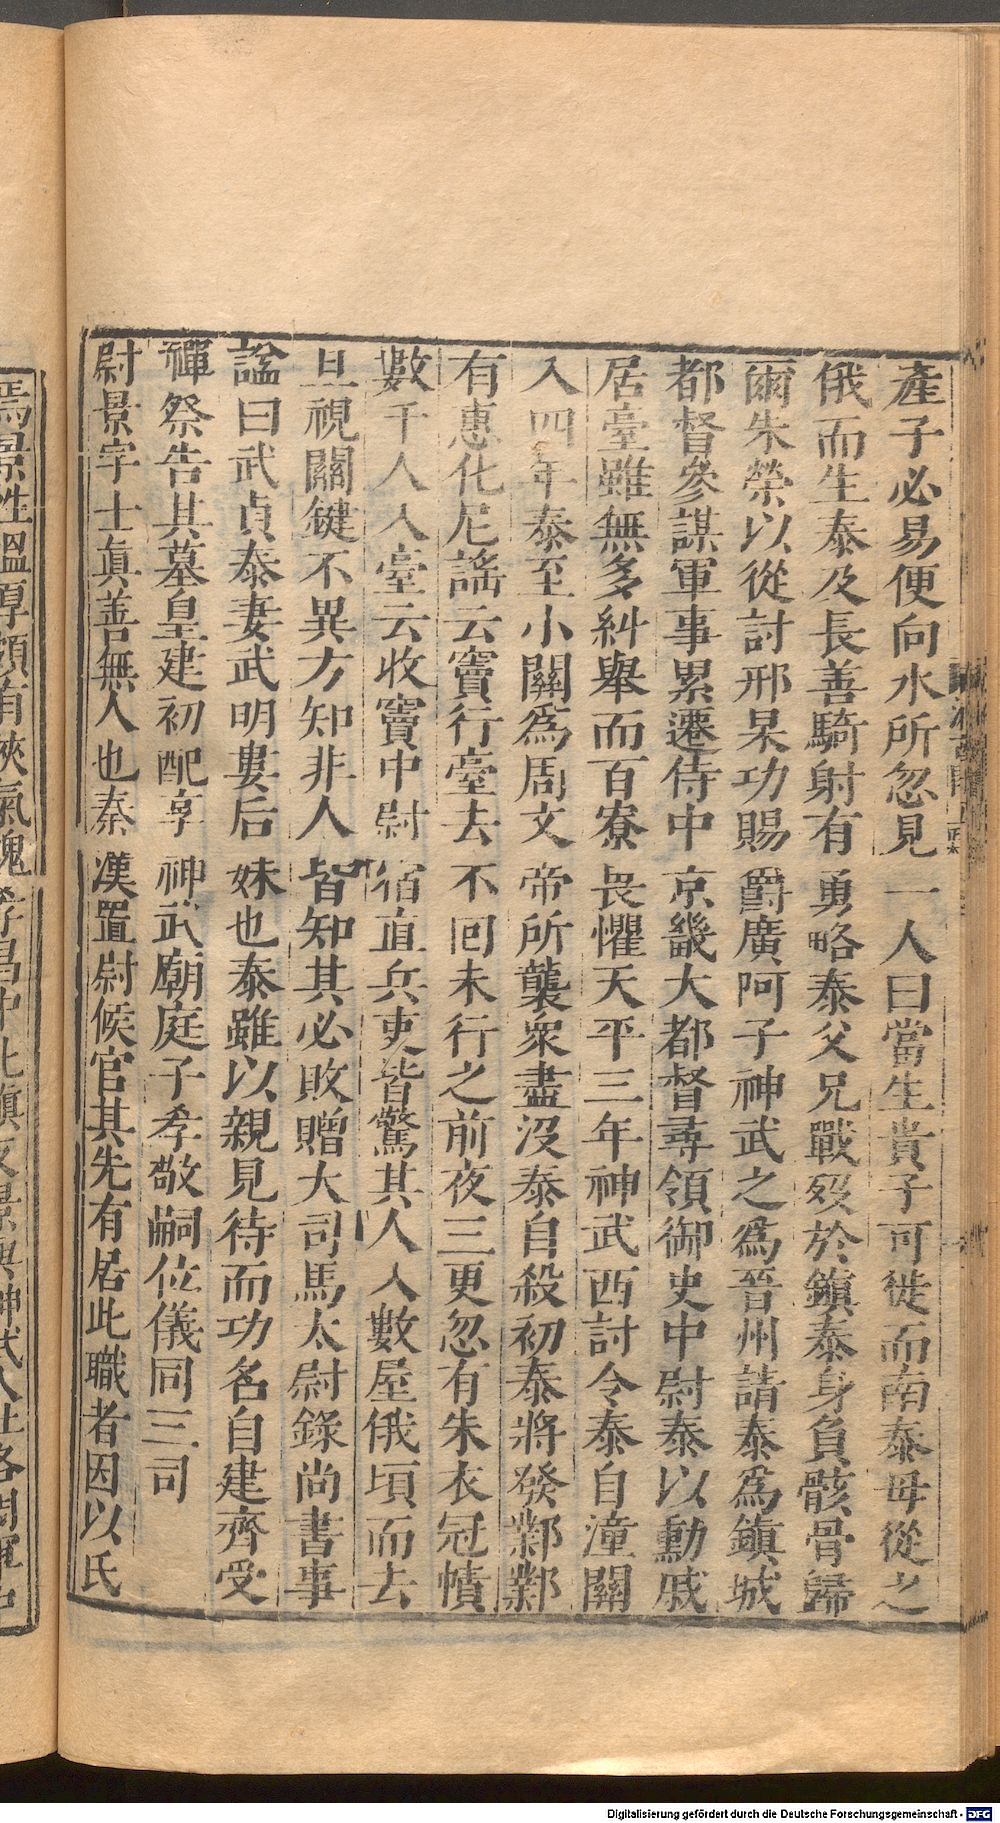 產子必易便向水所忽見一人曰當生貴子可徙而南泰母從之
俄而生泰及長善騎射有勇略泰父兄戰歿於鎮泰身負骸骨歸
爾朱榮以從討邢杲功賜爵廣阿子神武之爲晉州請泰爲鎮城
都督參謀軍事累遷侍中京畿大都督尋領御史中尉泰以勳戚
居臺雖無多糾舉而百寮畏懼天平三年神武西討令泰自潼關
入四年泰至小關爲周文帝所襲衆盡沒泰自殺初泰將發鄴鄴
有惠化尼謠云竇行臺去不回未行之前夜三更忽有朱衣冠幘
數千人入臺云收竇中尉宿直兵吏皆驚其人入數屋俄頃而去
旦視關鍵不異方知非人皆知其必敗贈大司馬太尉錄尚書事
諡曰武貞泰妻武明婁后妹也泰雖以親見待而功名自建齊受
禪祭告其墓皇建初配享神武廟庭子孝敬嗣位儀同三司
尉景字士眞善無人也秦漢置尉候官其先有居此職者因以氏
焉景性溫厚頗有俠氣魏孝昌中北鎮反景與神武入杜洛周軍中
Digitalisierung gefördert durch die Deutsche Forschungsgemeinschaft - DFG